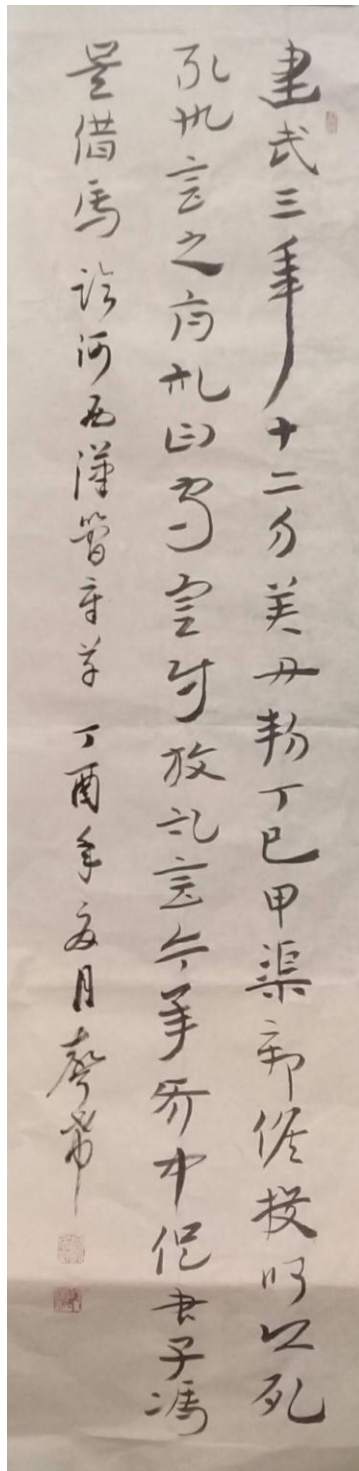 建武三年十二月癸丑朔丁巳甲渠鄣候獲叩頭死
罪敢言之府記曰守塞尉放記言今年正月中從女子馮
借馬 臨河西漢簡章草 丁酉年夏月 聲希